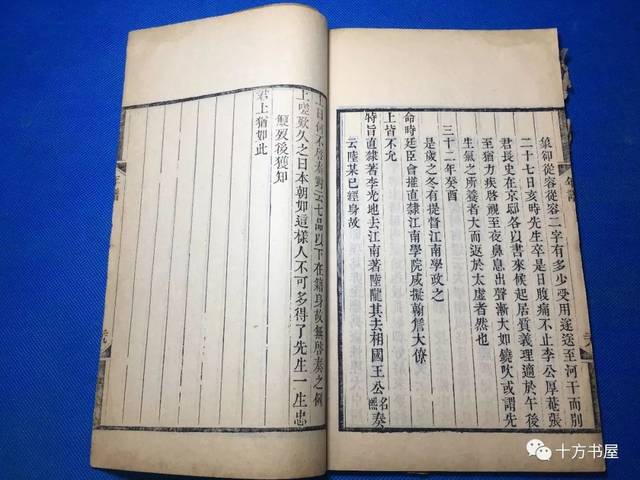 裝卻從容從容二字有多少受用遂送至河干而別
二十七日亥時先生卒是日腹痛不止李公厚菴張
君長史在京邸各以書來候起居質義理適於午後
至猶力疾啓視至夜鼻息出聲漸大如鐃吹或謂先
生氣之所養者大而返於太虛者然也
三十二年癸酉
是歲之冬有提督江南學政之
命時廷臣會推直隸江南學院咸擬翰詹大僚
上皆不允
特旨直隸著李光地去江南著陸隴其去相國王公名熙奏
云陸某已經身故
上曰何不啓奏對云七品以下在籍身故無啓奏之例
上嗟歎久之日本朝如這樣人不可多得了先生一生忠
艱歿後獲知
君上猶如此
年譜
十方书屋